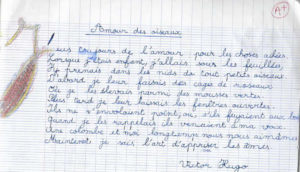 A+
Amour des oiseaux
J'eus toujours de l'amour pour les choses ailées
Lorsque j'étais enfant, j'allais sous les feuillées,
J'y prenais dans les nids de tout petits oiseaux
D'abord je leur faisais des cages de roseaux
Où je les élevais parmi des mousses vertes
Plus tard je leur laissais les fenêtres ouvertes.
Ils ne s'envolaient point, ou, s'ils fuyaient aux bois
Quand je les rappelais ils venaient à ma voix.
Une colombe et moi longtemps nous nous aimâmes
Maintenant je sais l'art d'apprivoiser les âmes
Victor Hugo